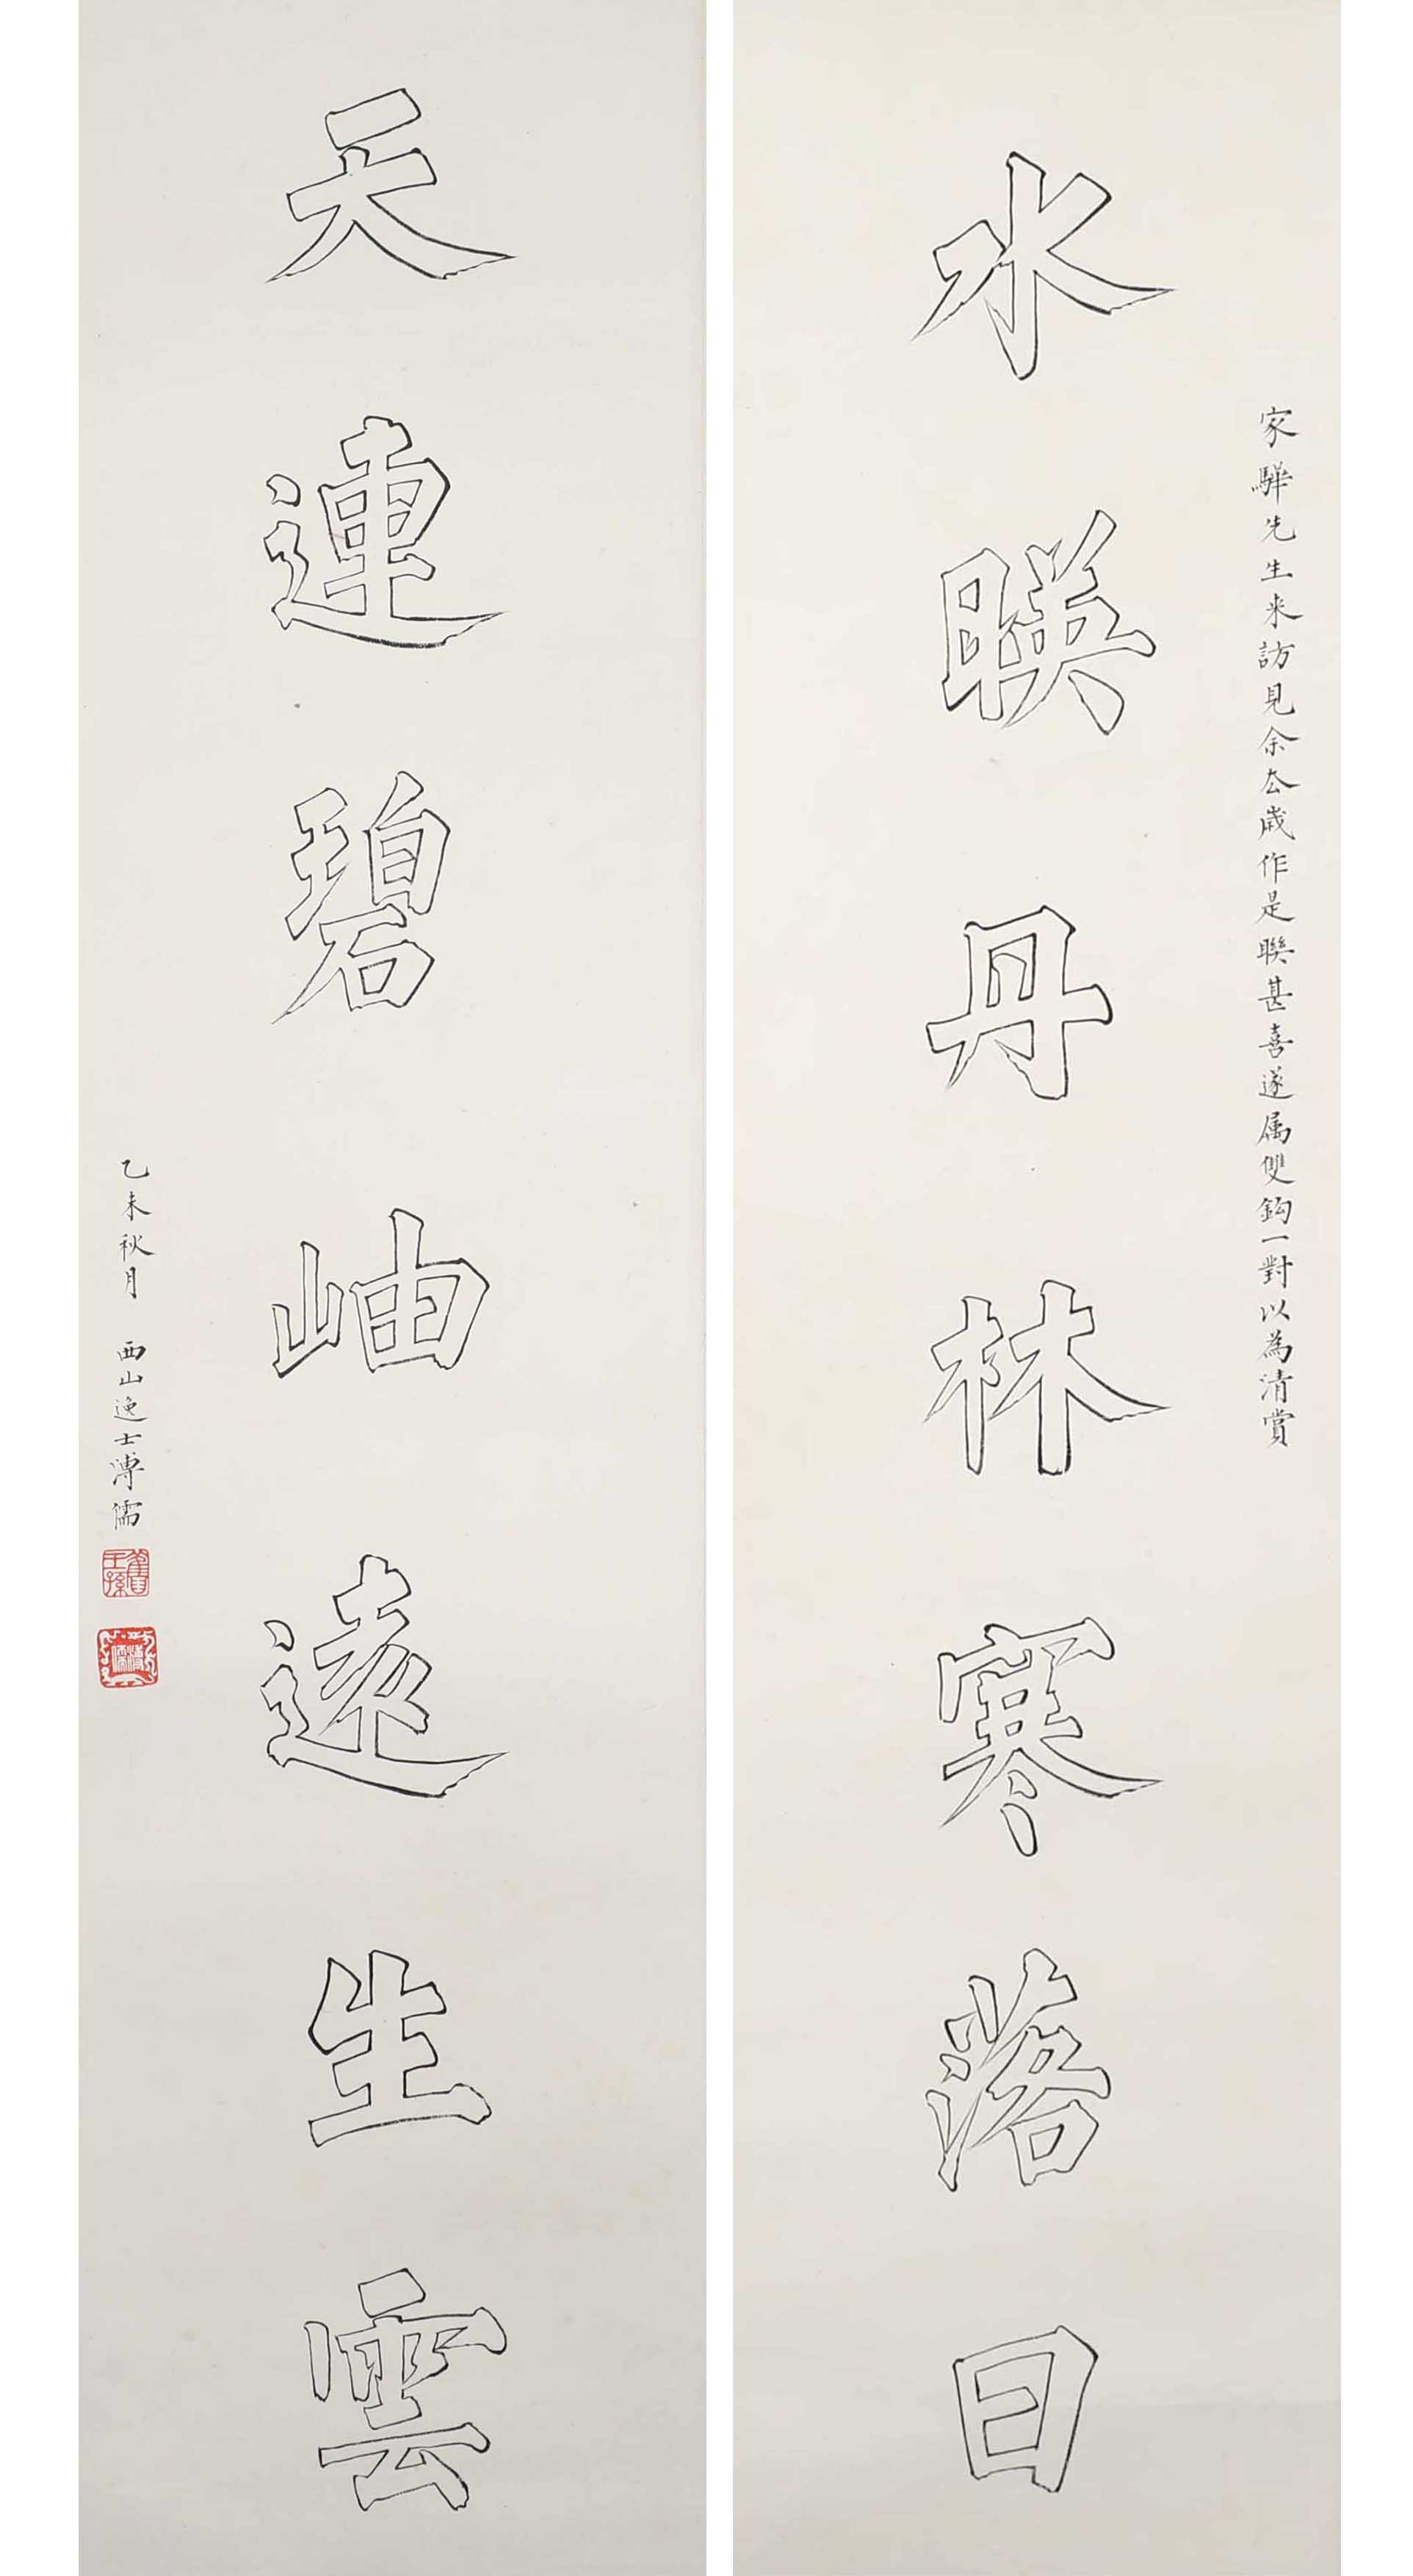 家驊先生来訪見余去歲作是聯甚喜遂属雙鈎一對以為清賞
水暎丹林寒落日
天連碧岫遠生雲
乙未秋月 西山逸士溥儒
舊王孫
溥儒